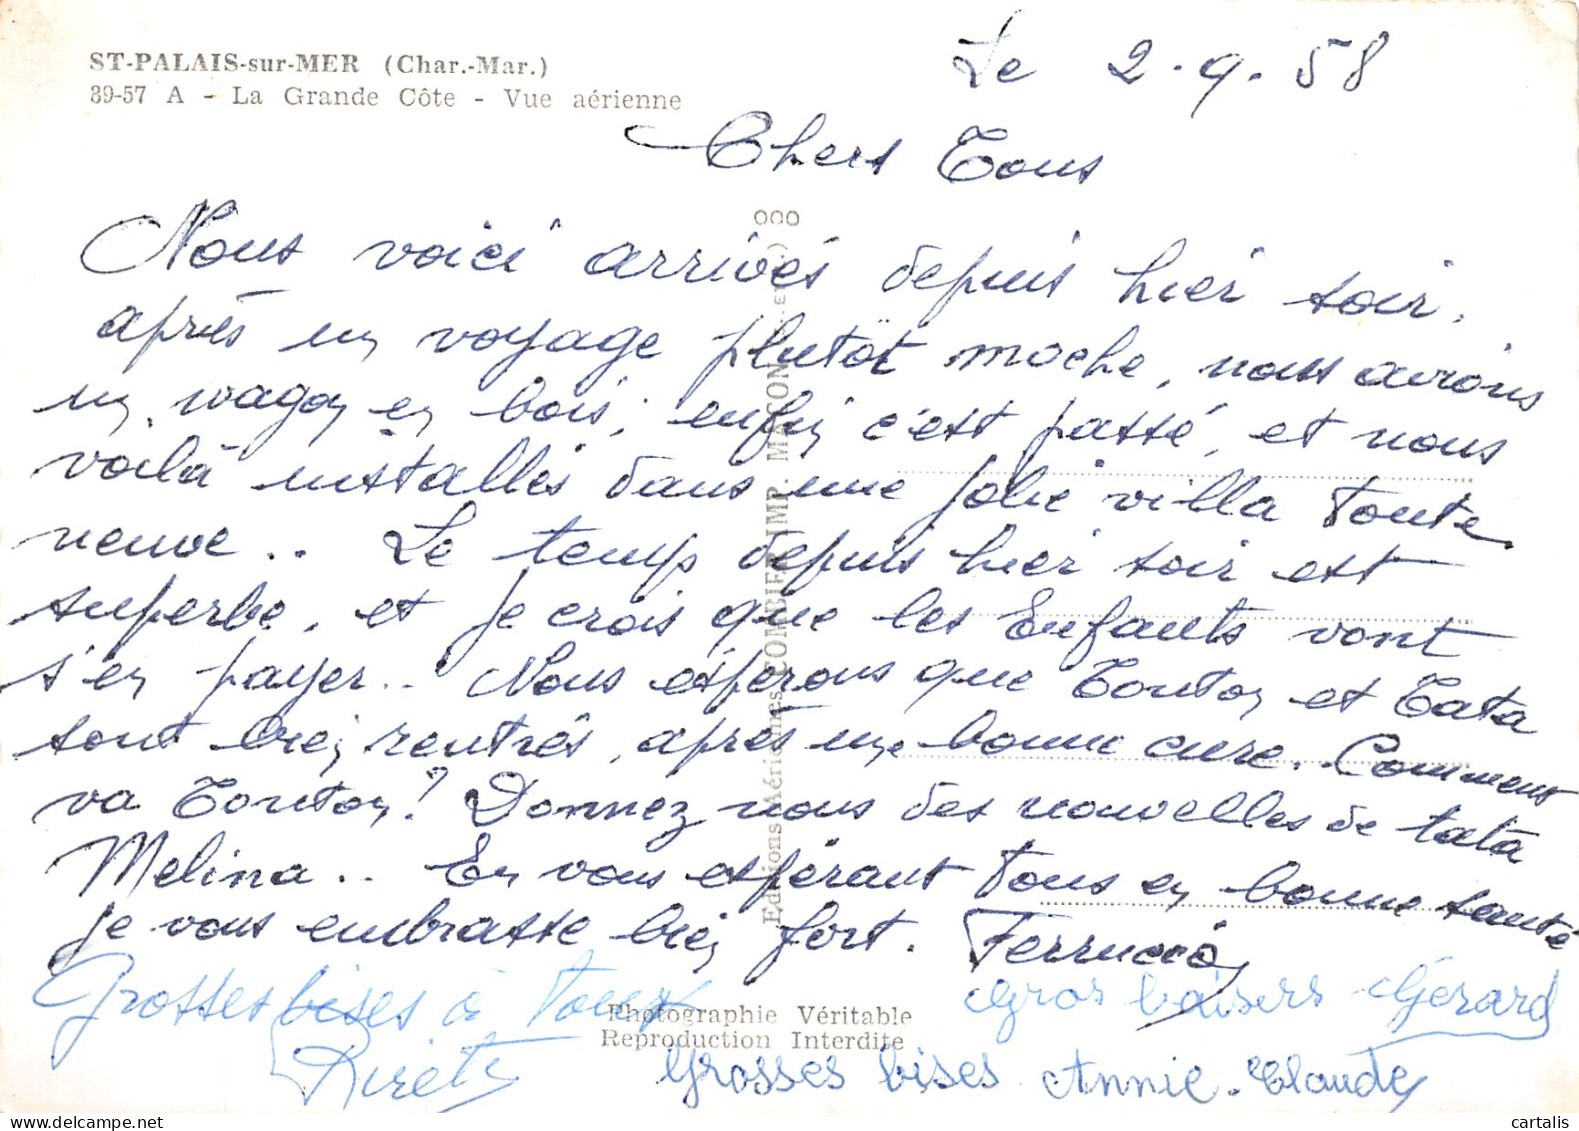 ST-PALAIS-sur-MER (Char.-Mar.)
39-57 A - La Grande Côte - Vue aérienne
Le 2.9.58
Chers Tous
Nous voici arrivés depuis hier soir,
après un voyage plutôt moche, nous avions
un wagon en bois; enfin c'est passé, et nous
voilà installés dans une jolie villa toute
neuve.. Le temps depuis hier soir est
superbe, et je crois que les Enfants vont
s'en payer.. Nous espérons que Tonton et Tata
sont bien rentrés, après une bonne cure. Comment
va Tonton? Donnez nous des nouvelles de tata
Melina.. En vous espérant tous en bonne santé
je vous embrasse bien fort. Ferruccio
Grosses bises à tous
Gros baisers Gérard
Grosses bises Annie-Claude
Editions Aériennes COMBIER IMP. MACON
Photographie Véritable
Reproduction Interdite
© cartalis | delcampe.net